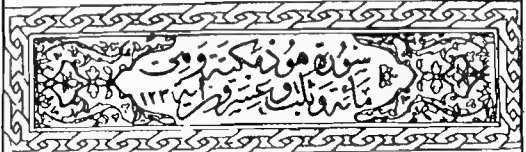 سُورَةُ هُودٍ مَكِّيَّةٌ وَهِيَ
مِائَةٌ وَثَلَاثٌ وَعِشْرُونَ آيَة ١٢٣